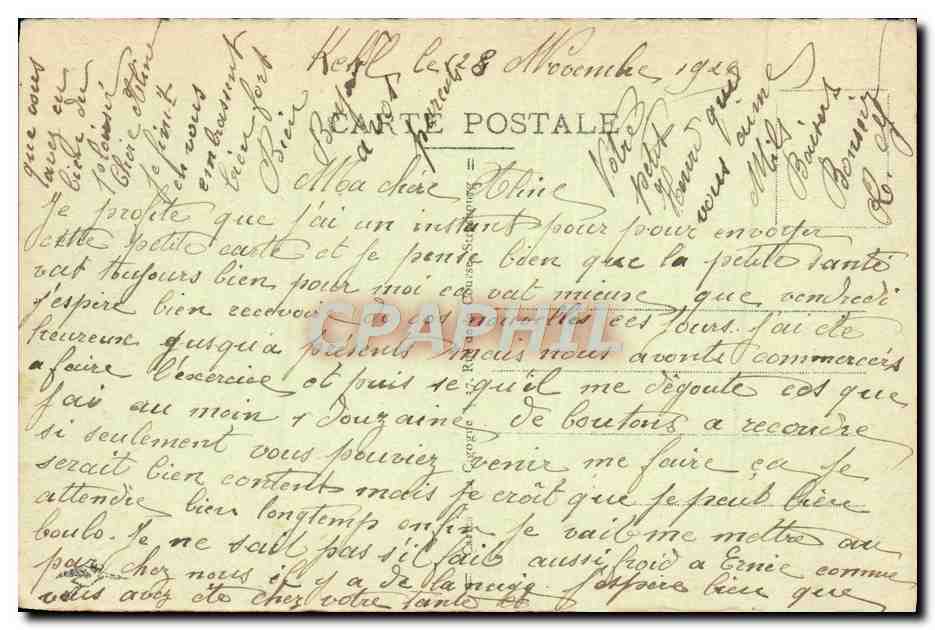 Kehl le 28 Novembre 192
CARTE POSTALE
Ma chère Aline
Je profite que j'ai un instant pour pour envoyer
cette petite carte et je pense bien que la petite santé
vat toujours bien pour moi ca vat mieux que vendredi
j'espère bien recevoir de des nouvelles ces jours. j'ai été
heureux jusqua présents mais nous avonts commencers
a faire l'exercice et puis se qu'il me dégoute ces que
j'ai au moin 1 douzaine de boutons a recoudre
si seulement vous pouviez venir me faire ça je
serait bien content mais je crôit que je peut bien
attendre bien longtemp enfin je vait me mettre au
boulo. Je ne sait pas s'i fait aussi froid a Ernée comme
par chez nous il y a de la neige j'espère bien que
vous avez été chez votre tante et
que vous
avez eu
bien du
plaisir
chère Aline
Je finit
en vous
embrassant
bien fort
Bien
Bonjour
a vos
parents
Votre
petit
Henri que
vous aime
Mils
Baisers
Bonsoir
CPAPHIL